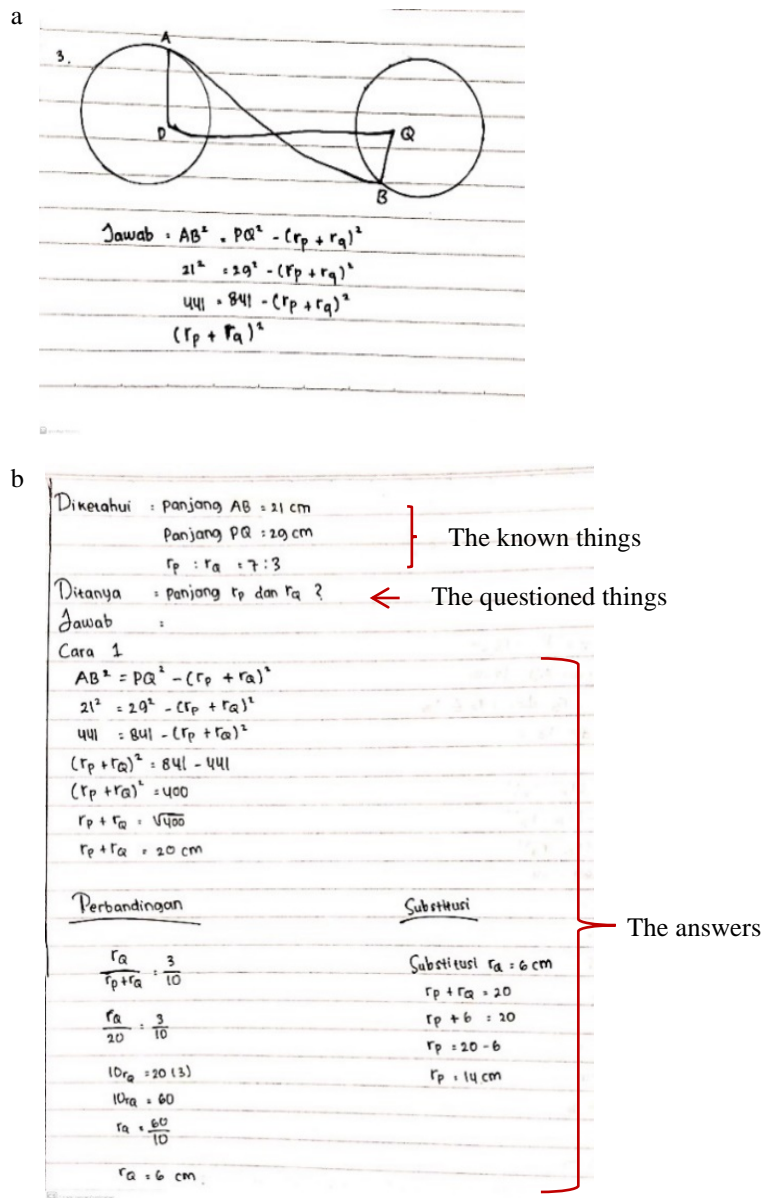 a
3.
A
D
Q
B
Jawab : AB² = PQ² - (rp + rq)²
21² = 29² - (rp + rq)²
441 = 841 - (rp + rq)²
(rp + rq)²
b
Diketahui : panjang AB = 21 cm
Panjang PQ = 29 cm
rp : rQ = 7 : 3
The known things
Ditanya : panjang rp dan rQ ?
The questioned things
Jawab :
Cara 1
AB² = PQ² - (rp + rQ)²
21² = 29² - (rp + rQ)²
441 = 841 - (rp + rQ)²
(rp + rQ)² = 841 - 441
(rp + rQ)² = 400
rp + rQ = √400
rp + rQ = 20 cm
The answers
Perbandingan
rQ / rp+rQ = 3/10
rQ / 20 = 3/10
10rQ = 20(3)
10rQ = 60
rQ = 60/10
rQ = 6 cm
Substitusi
Substitusi rQ = 6 cm
rp + rQ = 20
rp + 6 = 20
rp = 20 - 6
rp = 14 cm